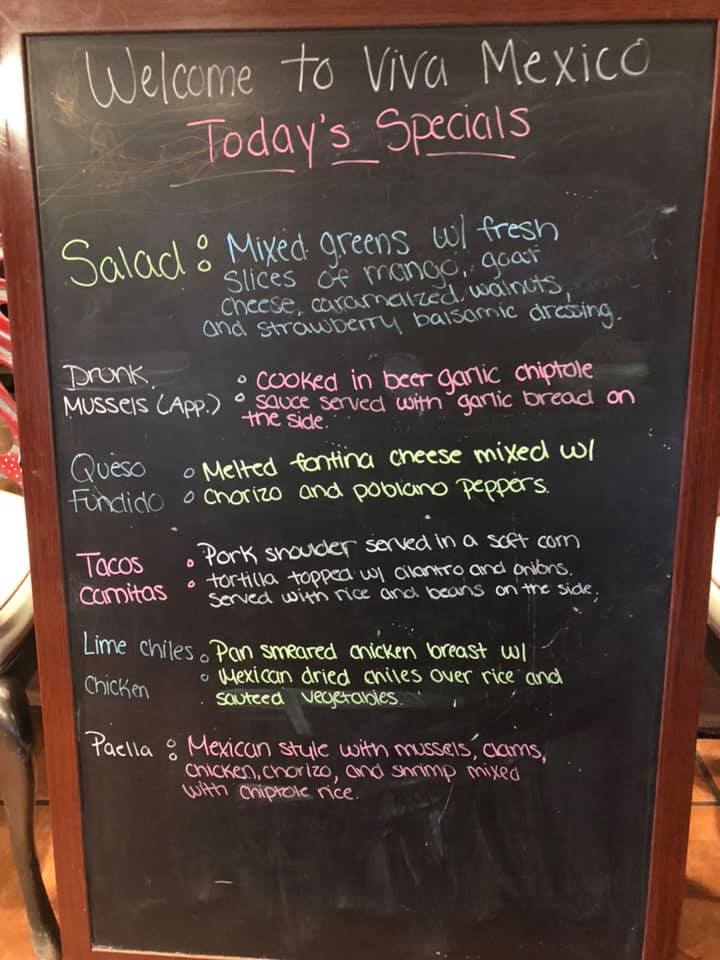 Welcome to Viva Mexico
Today's Specials
Salad: Mixed greens w/ fresh
slices of mango, goat
cheese, caramelized, walnuts,
and strawberry balsamic dressing.
Drunk : cooked in beer garlic chiptole
Mussels (App.) sauce served with garlic bread on
the side.
Queso : Melted fontina cheese mixed w/
Fundido chorizo and poblano peppers.
Tacos : Pork shoulder served in a soft corn
Carnitas tortilla topped w/ cilantro and onions.
served with rice and beans on the side.
Lime chiles : Pan smeared chicken breast w/
Chicken Mexican dried chiles over rice and
sauteed vegetables.
Paella : Mexican style with mussels, clams,
chicken, chorizo, and shrimp mixed
with chiptole rice.